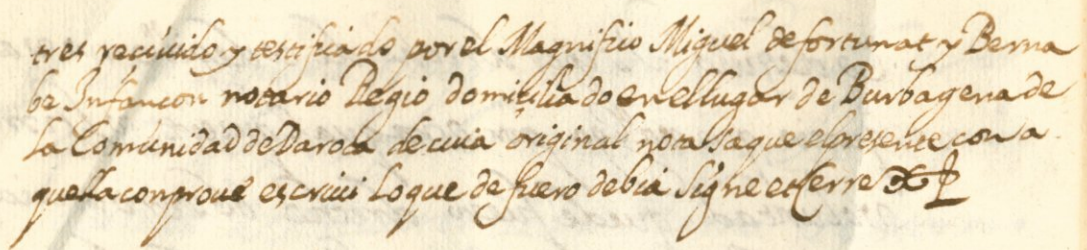 tres recivido y testificado por el Magnifico Miguel de fortunat y Berna
be Infançon notario Regio domiciliado en el lugar de Burbagena de
la Comunidad de Daroca de cuia original nota saque el presente con a
quella conprové escrivi lo que de fuero debia signe et Cerre